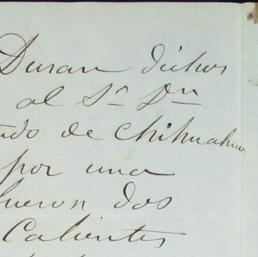 Duran dichos
al Sr Dn
ndo de Chihuahua
por una
fueron dos
Calientes